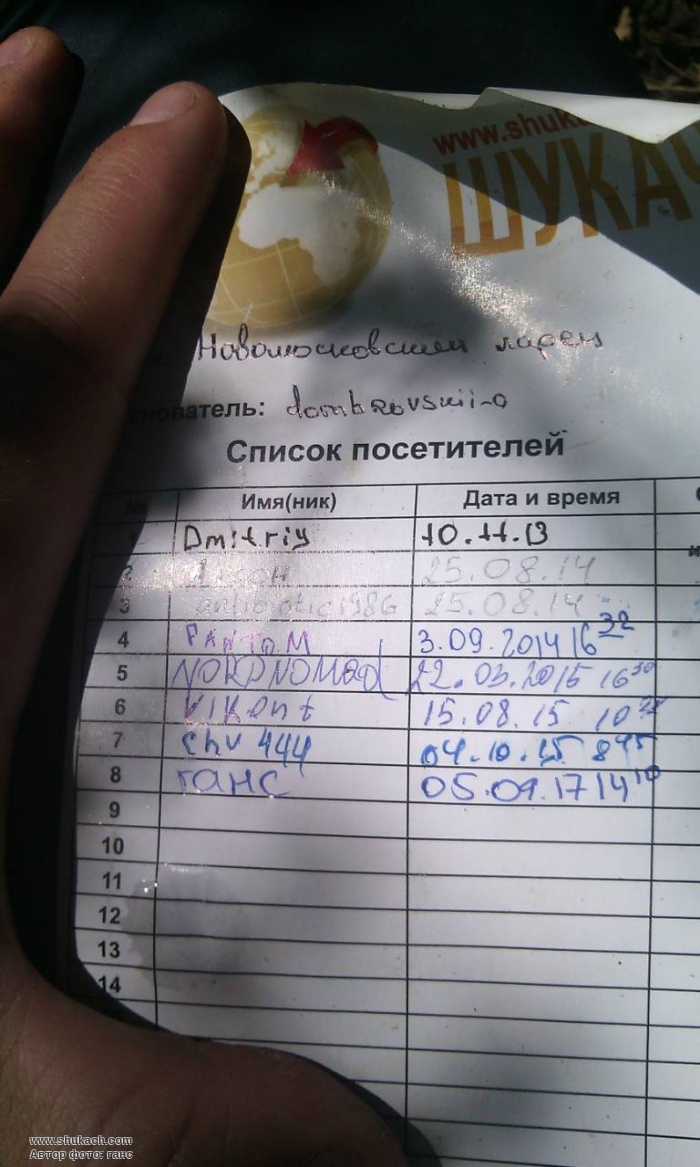 www.shuk
ШУКАЧ
dombrovskii-o
снователь:
Список посетителей
Имя(ник) Дата и время
Dmitriy 10.11.13
2 25.08.14
3 antibiotic1986 25.08.14
4 FANTOM 3.09.2014 16 32
5 NORDNOMAd 22.03.2015 16 30
6 Vikont 15.08.15 10
7 chv 444 04.10.15 8 45
8 ганс 05.09.17 14 10
9
10
11
12
13
14
www.shukach.com
Автор фото: ганс